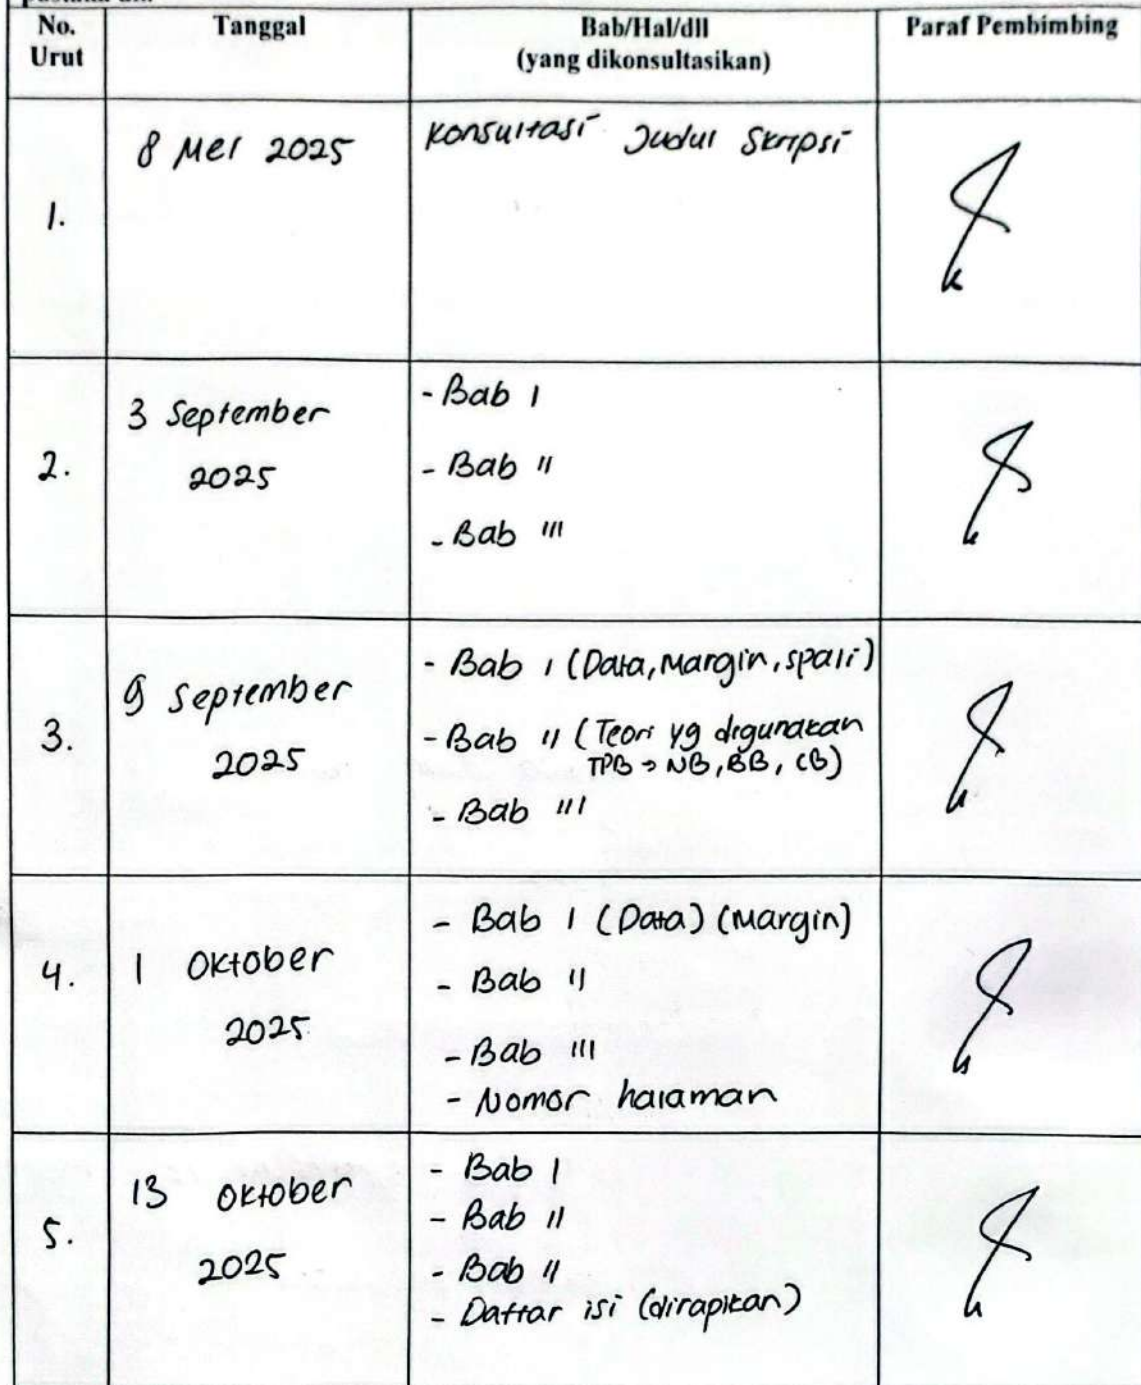 No. Urut
Tanggal
Bab/Hal/dll
(yang dikonsultasikan)
Paraf Pembimbing
1.
8 Mei 2025
Konsultasi Judul Skripsi
2.
3 September
2025
- Bab I
- Bab II
- Bab III
3.
9 September
2025
- Bab I (Data, Margin, spasi)
- Bab II (Teori yg digunakan
TPB → NB, BB, CB)
- Bab III
4.
1 Oktober
2025
- Bab I (Data) (Margin)
- Bab II
- Bab III
- Nomor halaman
5.
13 Oktober
2025
- Bab I
- Bab II
- Bab II
- Daftar isi (dirapikan)